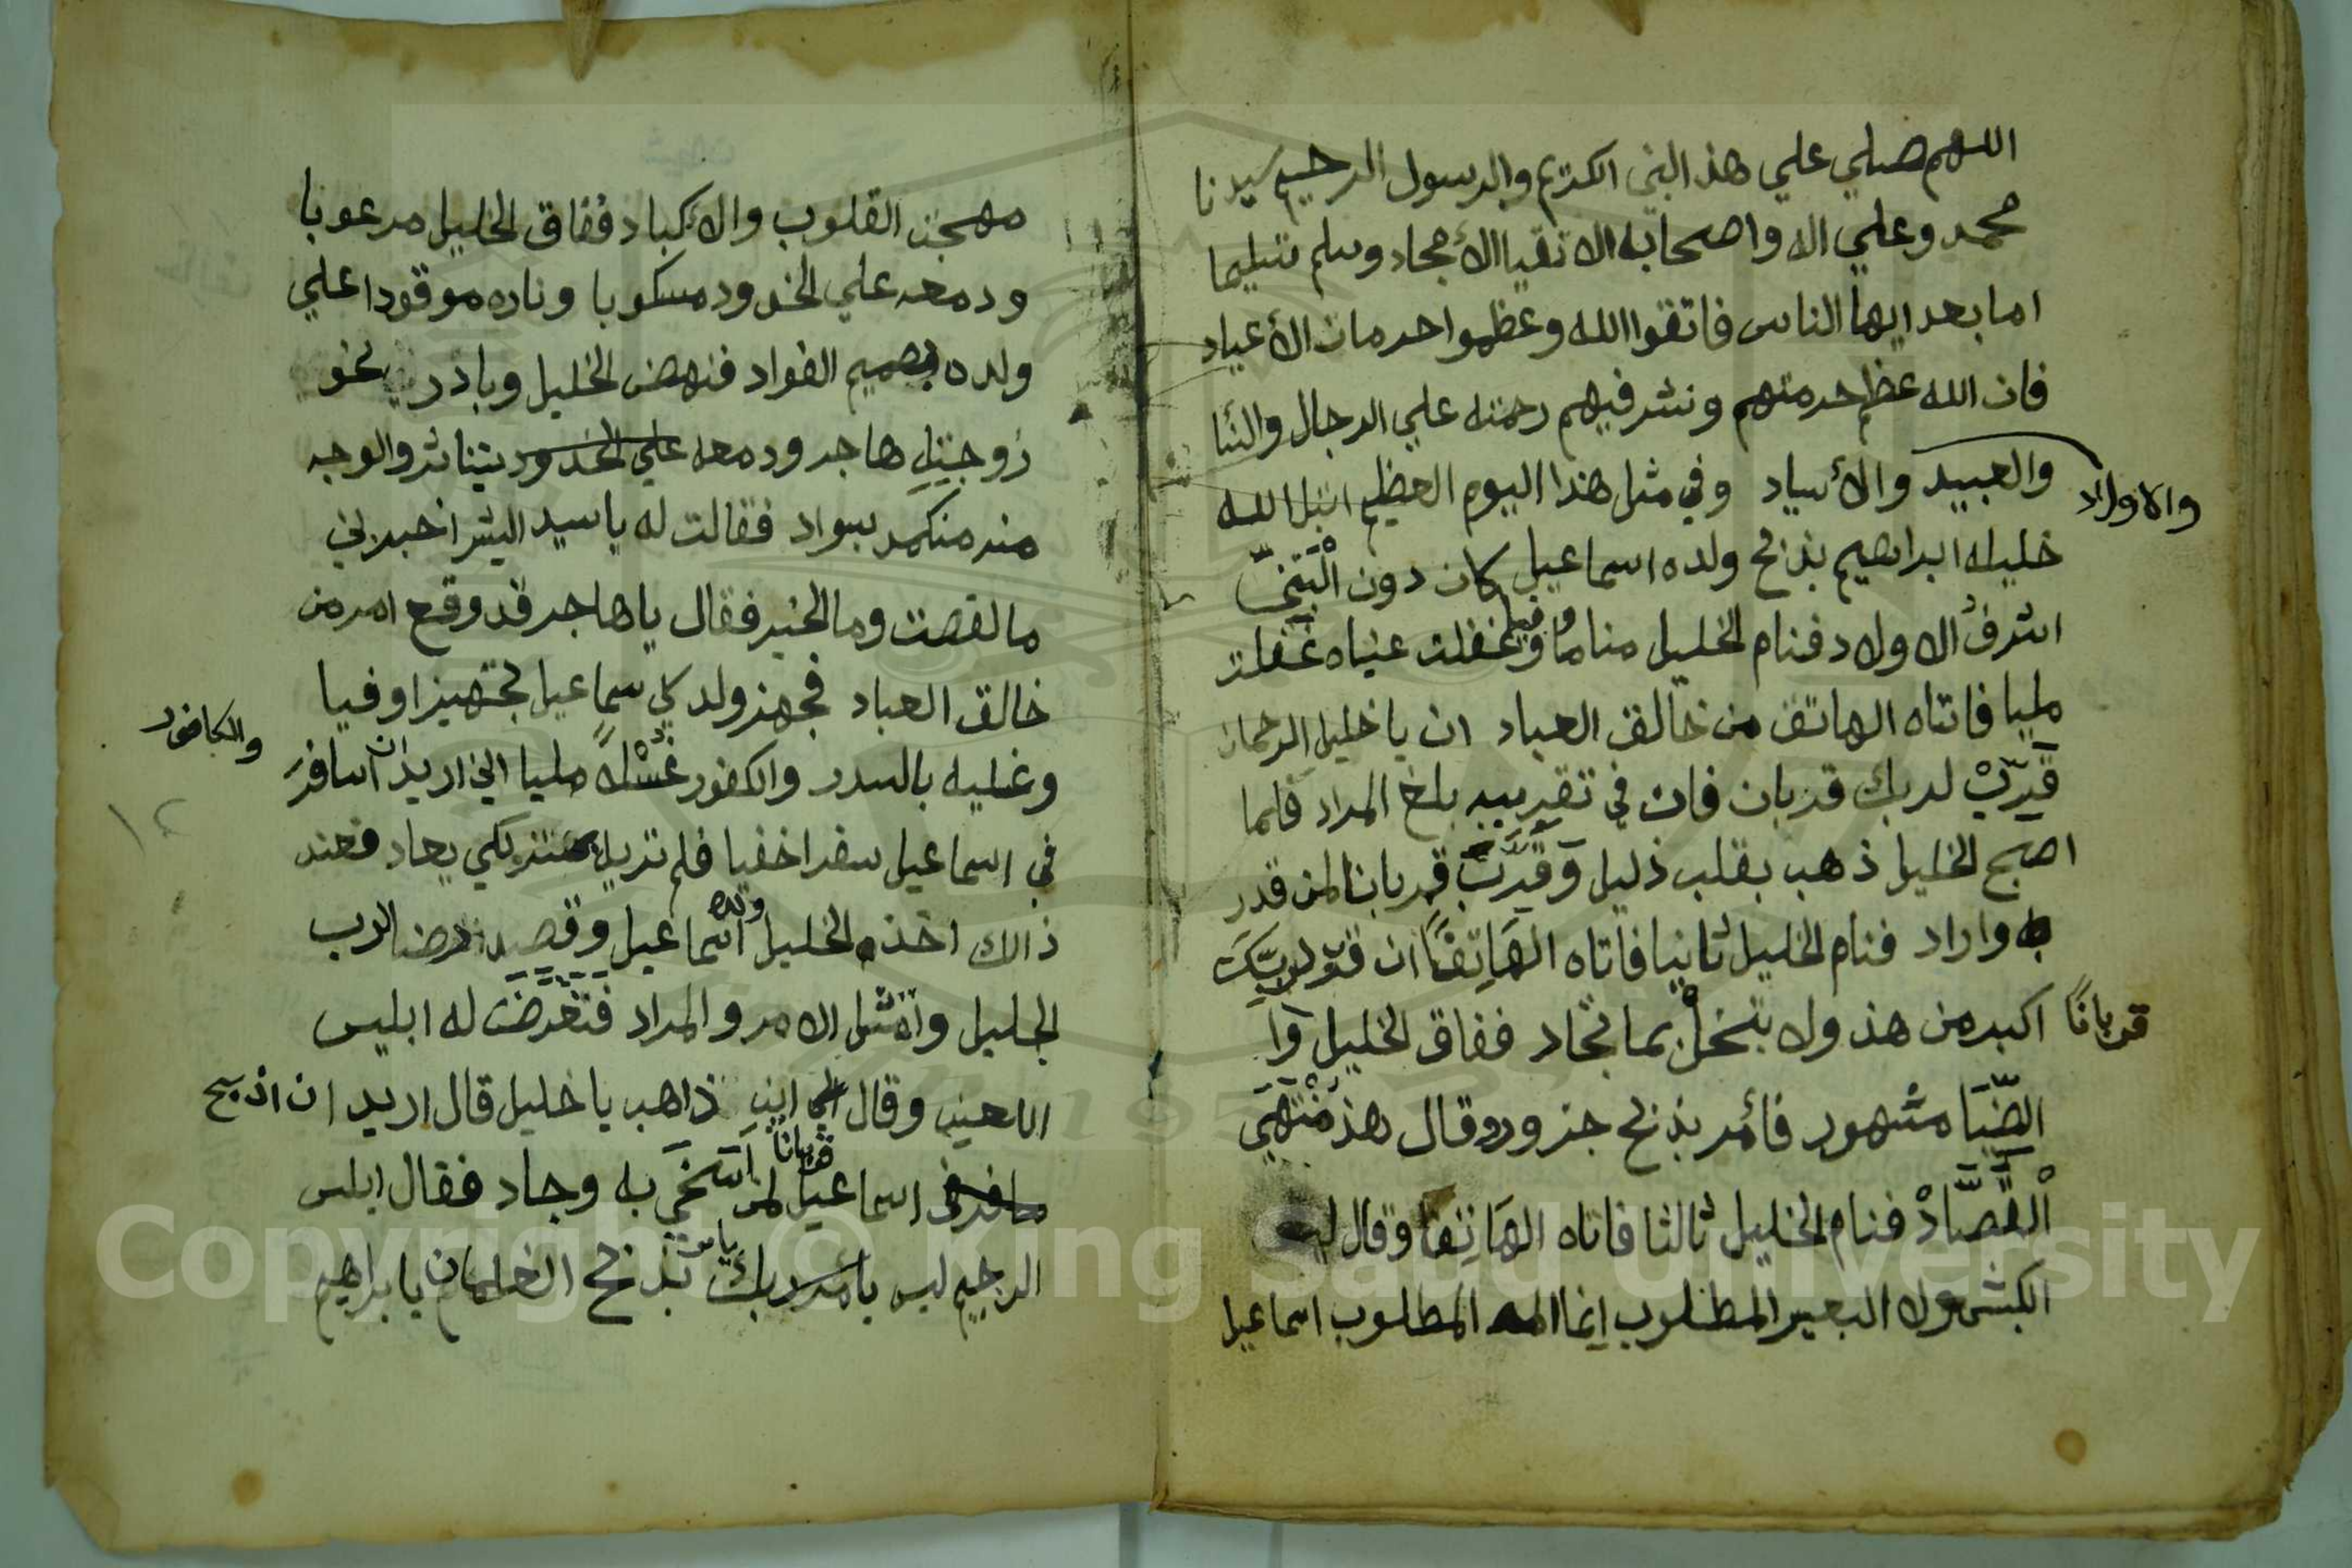 اللهم صلي علي هذ النبي الكريم والرسول الرحيم سيدنا
محمد وعلي اله واصحابه الاتقيا الأمجاد وسلم تسليما
اما بعد ايها الناس فاتقوا الله وعظموا حرمات الأعياد
فان الله عظم حرمتهم ونشر فيهم رحمته علي الرجال والنسا
والاولاد
والعبيد والأسياد وفي مثل هذا اليوم العظيم ابتل الله
خليله ابراهيم بذبح ولده اسماعيل كان دون
اشرف الاولاد فنام الخليل مناما وغفلت عيناه غفلت
مليا فاتاه الهاتف من خالق العباد ان يا خليل الرحمان
قرب لربك قربان فان في تقريبه بلغ المراد فلما
اصبح الخليل ذهب بقلب ذليل وقرب قربانا لمن قدر
به واراد فنام الخليل ثانيا فاتاه الهاتفا ان قرب لربك
قربانا
اكبر من هذ ولا تبخل بما تجاد ففاق الخليل وا
الضيا مشهور فأمر بذبح جزور وقال هذ منتهي
القصاد فنام الخليل ثالثا فاتاه الهاتفا وقال ليس
الكبش ولا البعير المطلوب انما المطلوب اسماعيل
مهجت القلوب والأكباد ففاق الخليل مرعوبا
ودمعه علي الخدود مسكوبا وناره موقودا علي
ولده بصميم الفواد فنهض الخليل وبادر نحو
زوجته هاجر ودمعه علي الخدود يتناثر والوجه
منه منكمر بسواد فقالت له يا سيد البشر اخبرني
ما لقصت وما الخبر فقال يا هاجر قد وقع امر من
خالق العباد فجهز ولدكي سماعيل تجهيزا وفيا
وغسليه بالسدر والكفور غسلا مليا اني اريد ان اسافر
والكافور
في اسماعيل سفرا خفيا فلم يعاد فعند
ذالك اخذ الخليل ولده اسماعيل وقصد رضا الرب
الجليل وامتثل الامر والمراد فتعرض له ابليس
اللعين وقال الي اين ذاهب يا خليل قال اريد ان اذبح
اسماعيل قربانا لمن اسخي به وجاد فقال ابلس
الرجيم ليس يامر ربك بذبح الغلمان يا براهيم